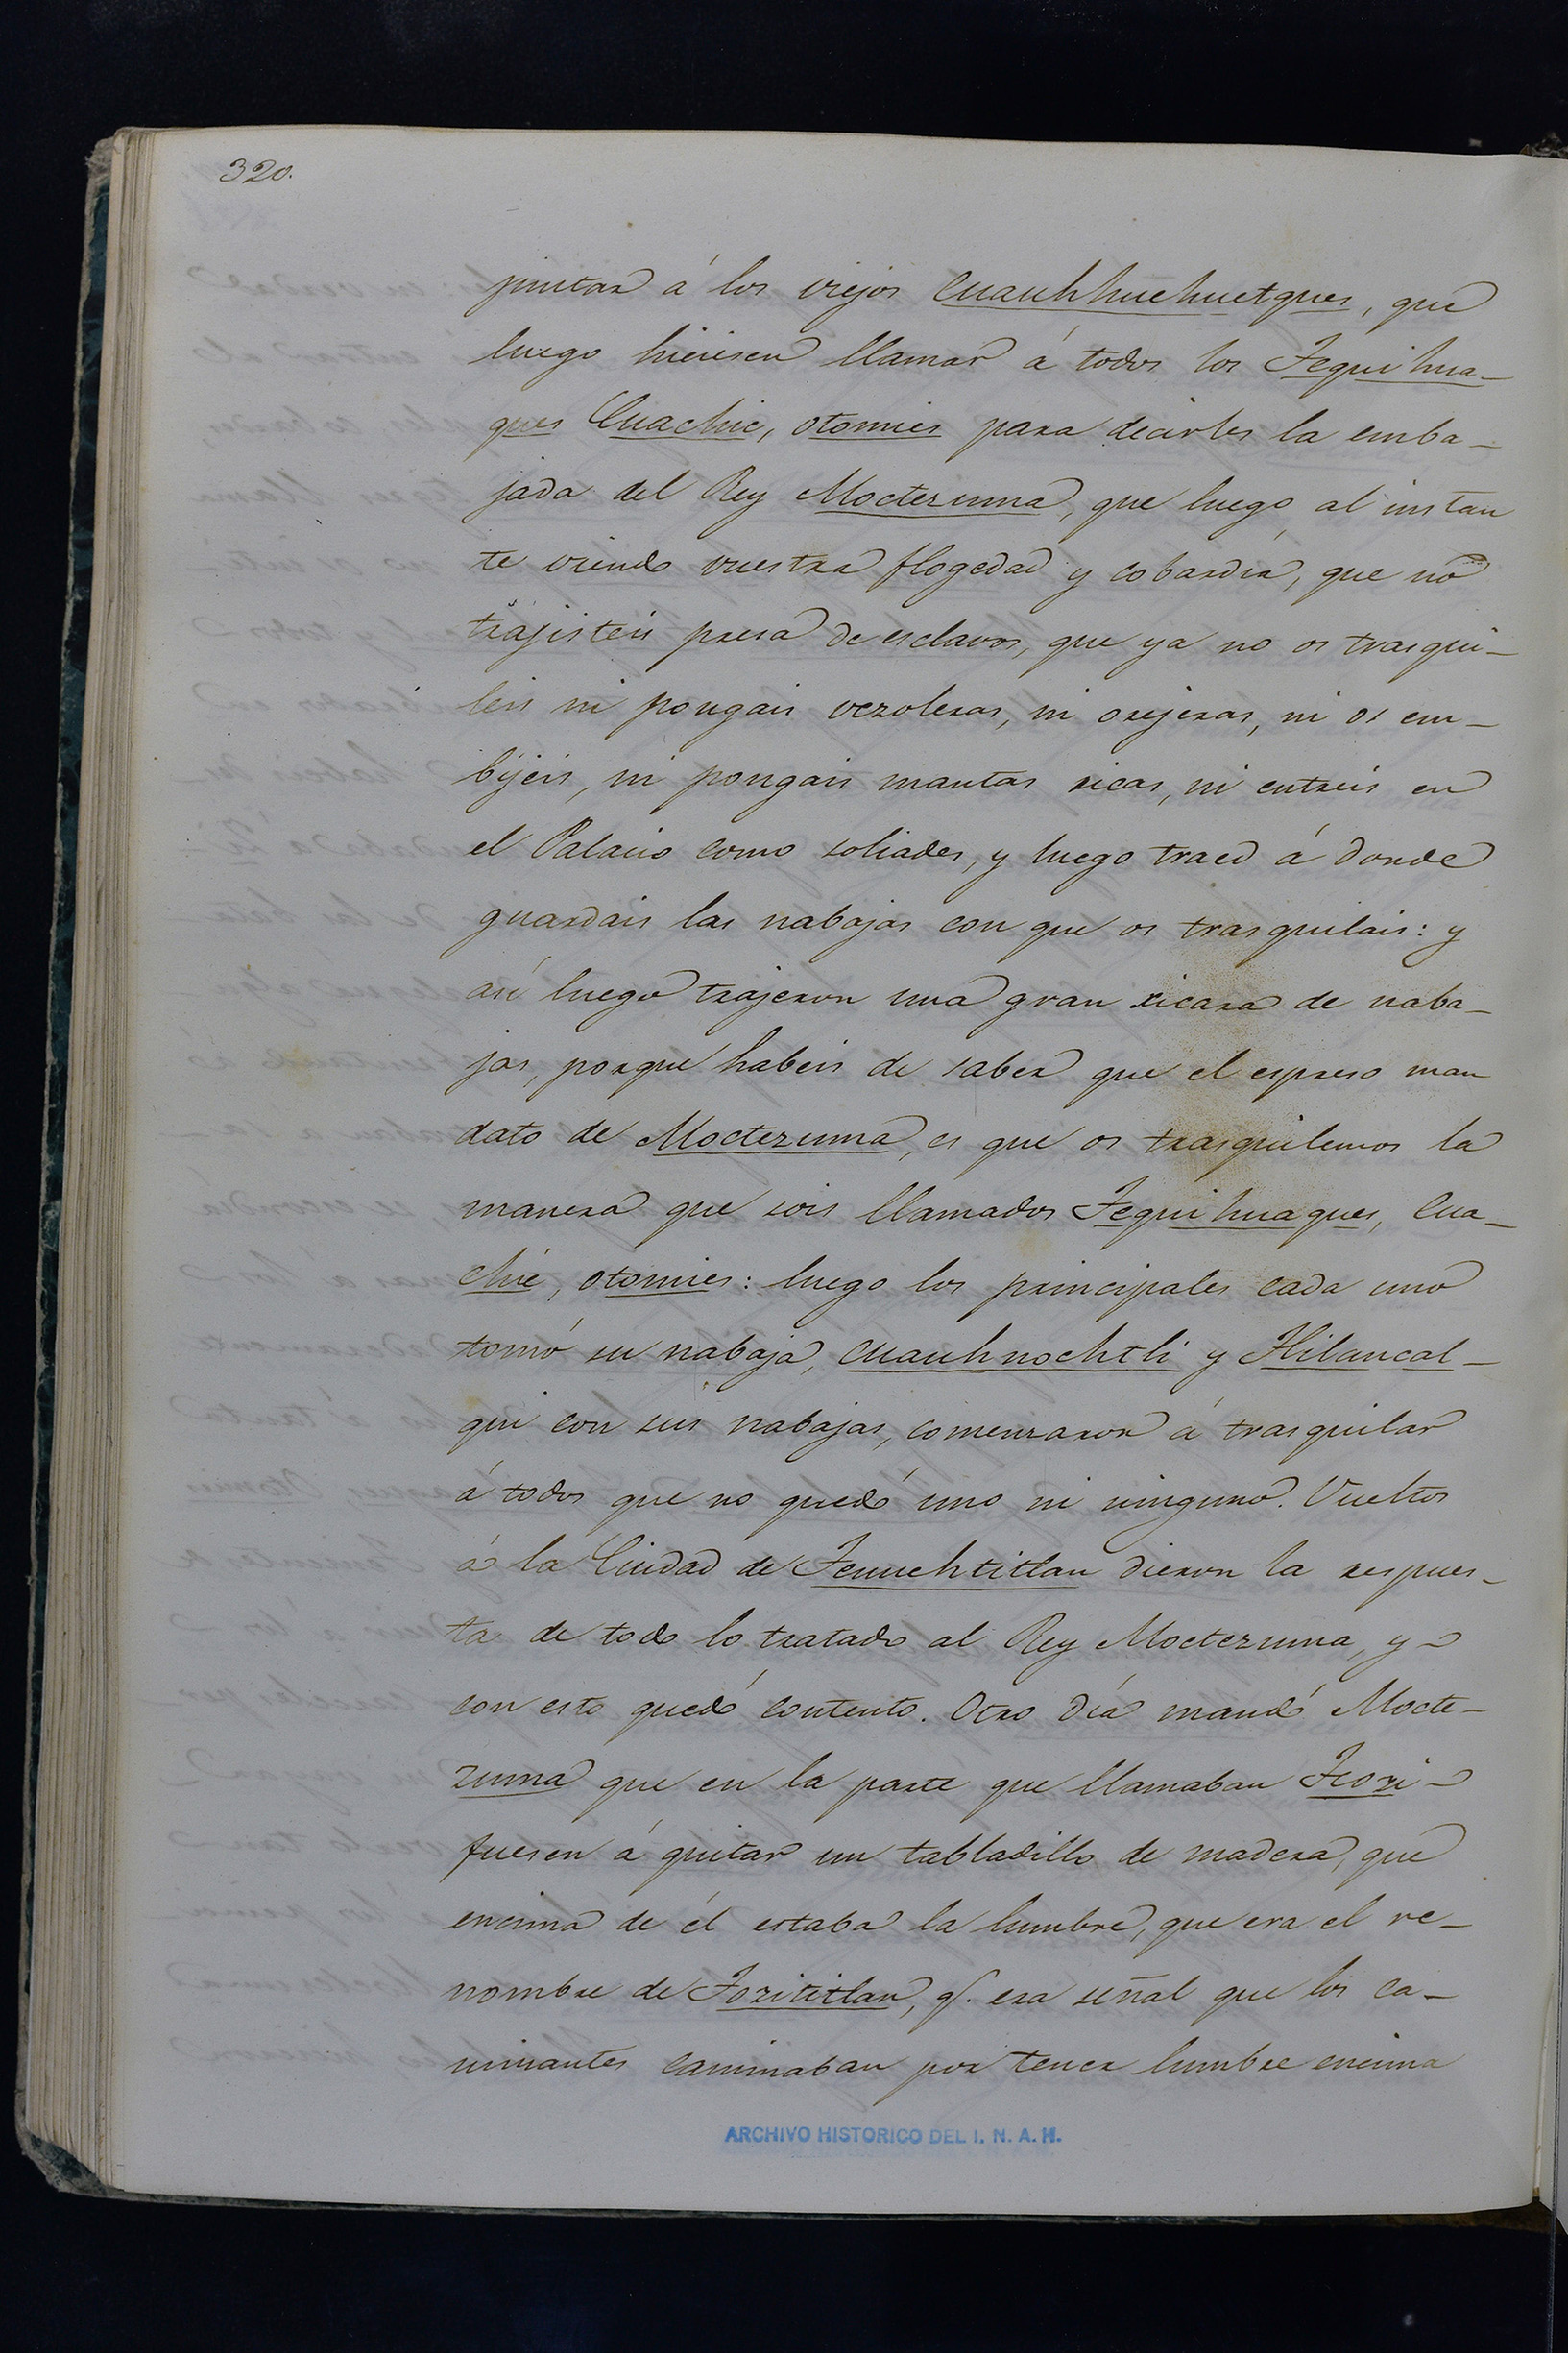 320.
juntar á los viejos Cuauhhuehuetques, que
luego hiciesen llamar á todos los Tequihua-
ques Cuachic, otomies para decirles la emba-
jada del Rey Moctezuma, que luego al instan
te viendo vuestra flogedad y cobardia, que no
trajisteis presa de esclavos, que ya no os trasqui-
leis ni pongais vezoleras, ni orejeras, ni os em-
bijeis, ni pongais mantas ricas, ni entreis en
el Palacio como soliades, y luego traed á donde
guardais las nabajas con que os trasquilais: y
así luego trajeron una gran xicara de naba-
jas, porque habeis de saber que el espreso man
dato de Moctezuma, es que os trasquilemos la
manera que sois llamados Tequihuaques, Cua-
chic, otomies: luego los principales cada uno
tomó su nabaja, Cuauhnochtli y Hilancal-
qui con sus nabajas, comenzaron á trasquilar
á todos que no quedó uno ni ninguno. Vueltos
á la Ciudad de Tenuchtitlan dieron la respues-
ta de todo lo tratado al Rey Moctezuma, y
con esto quedó contento. Otro día mandó Mocte-
zuma que en la parte que llamaban Tzozi-
fuesen á quitar un tabladillo de madera, que
encima de él estaba la lumbre, que era el re-
nombre de Tozititlan, q. era señal que los ca-
minantes caminaban por tener lumbre encima
ARCHIVO HISTORICO DEL I. N. A. H.